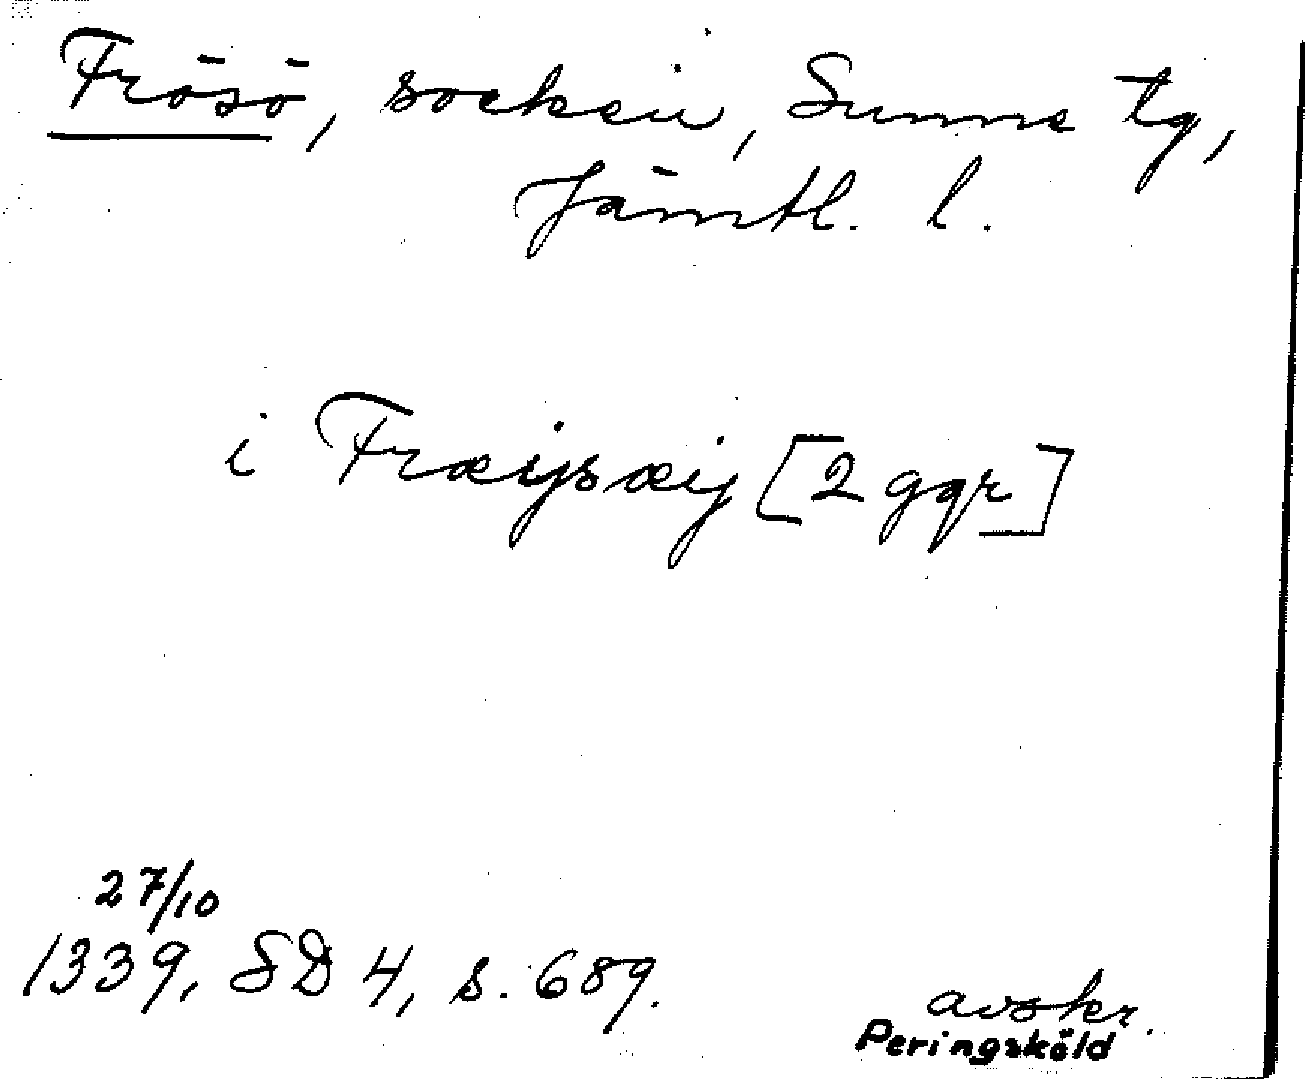 Frösö, socken, Sunne tg,
Jämtl. l.
i Fræysæij [2 ggr]
27/10
1339, SD 4, s. 689.
avskr.
Peringsköld